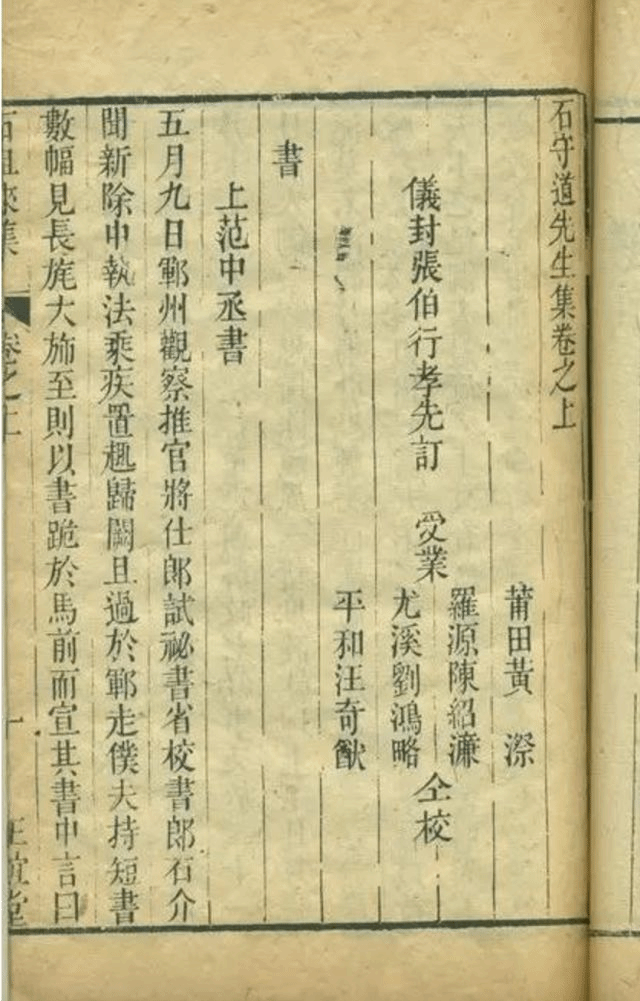 石守道先生集卷之上
莆田黃 深
羅源陳紹濂
儀封張伯行孝先訂 受業
尤溪劉鴻略
仝校
平和汪奇猷
書
上范中丞書
五月九日鄆州觀察推官將仕郎試祕書省校書郎石介
聞新除中執法乘疾置趣歸闕且過於鄆走僕夫持短書
數幅見長旄大斾至則以書跪於馬前而宣其書中言曰
石徂徠集 卷之上 一 正誼堂